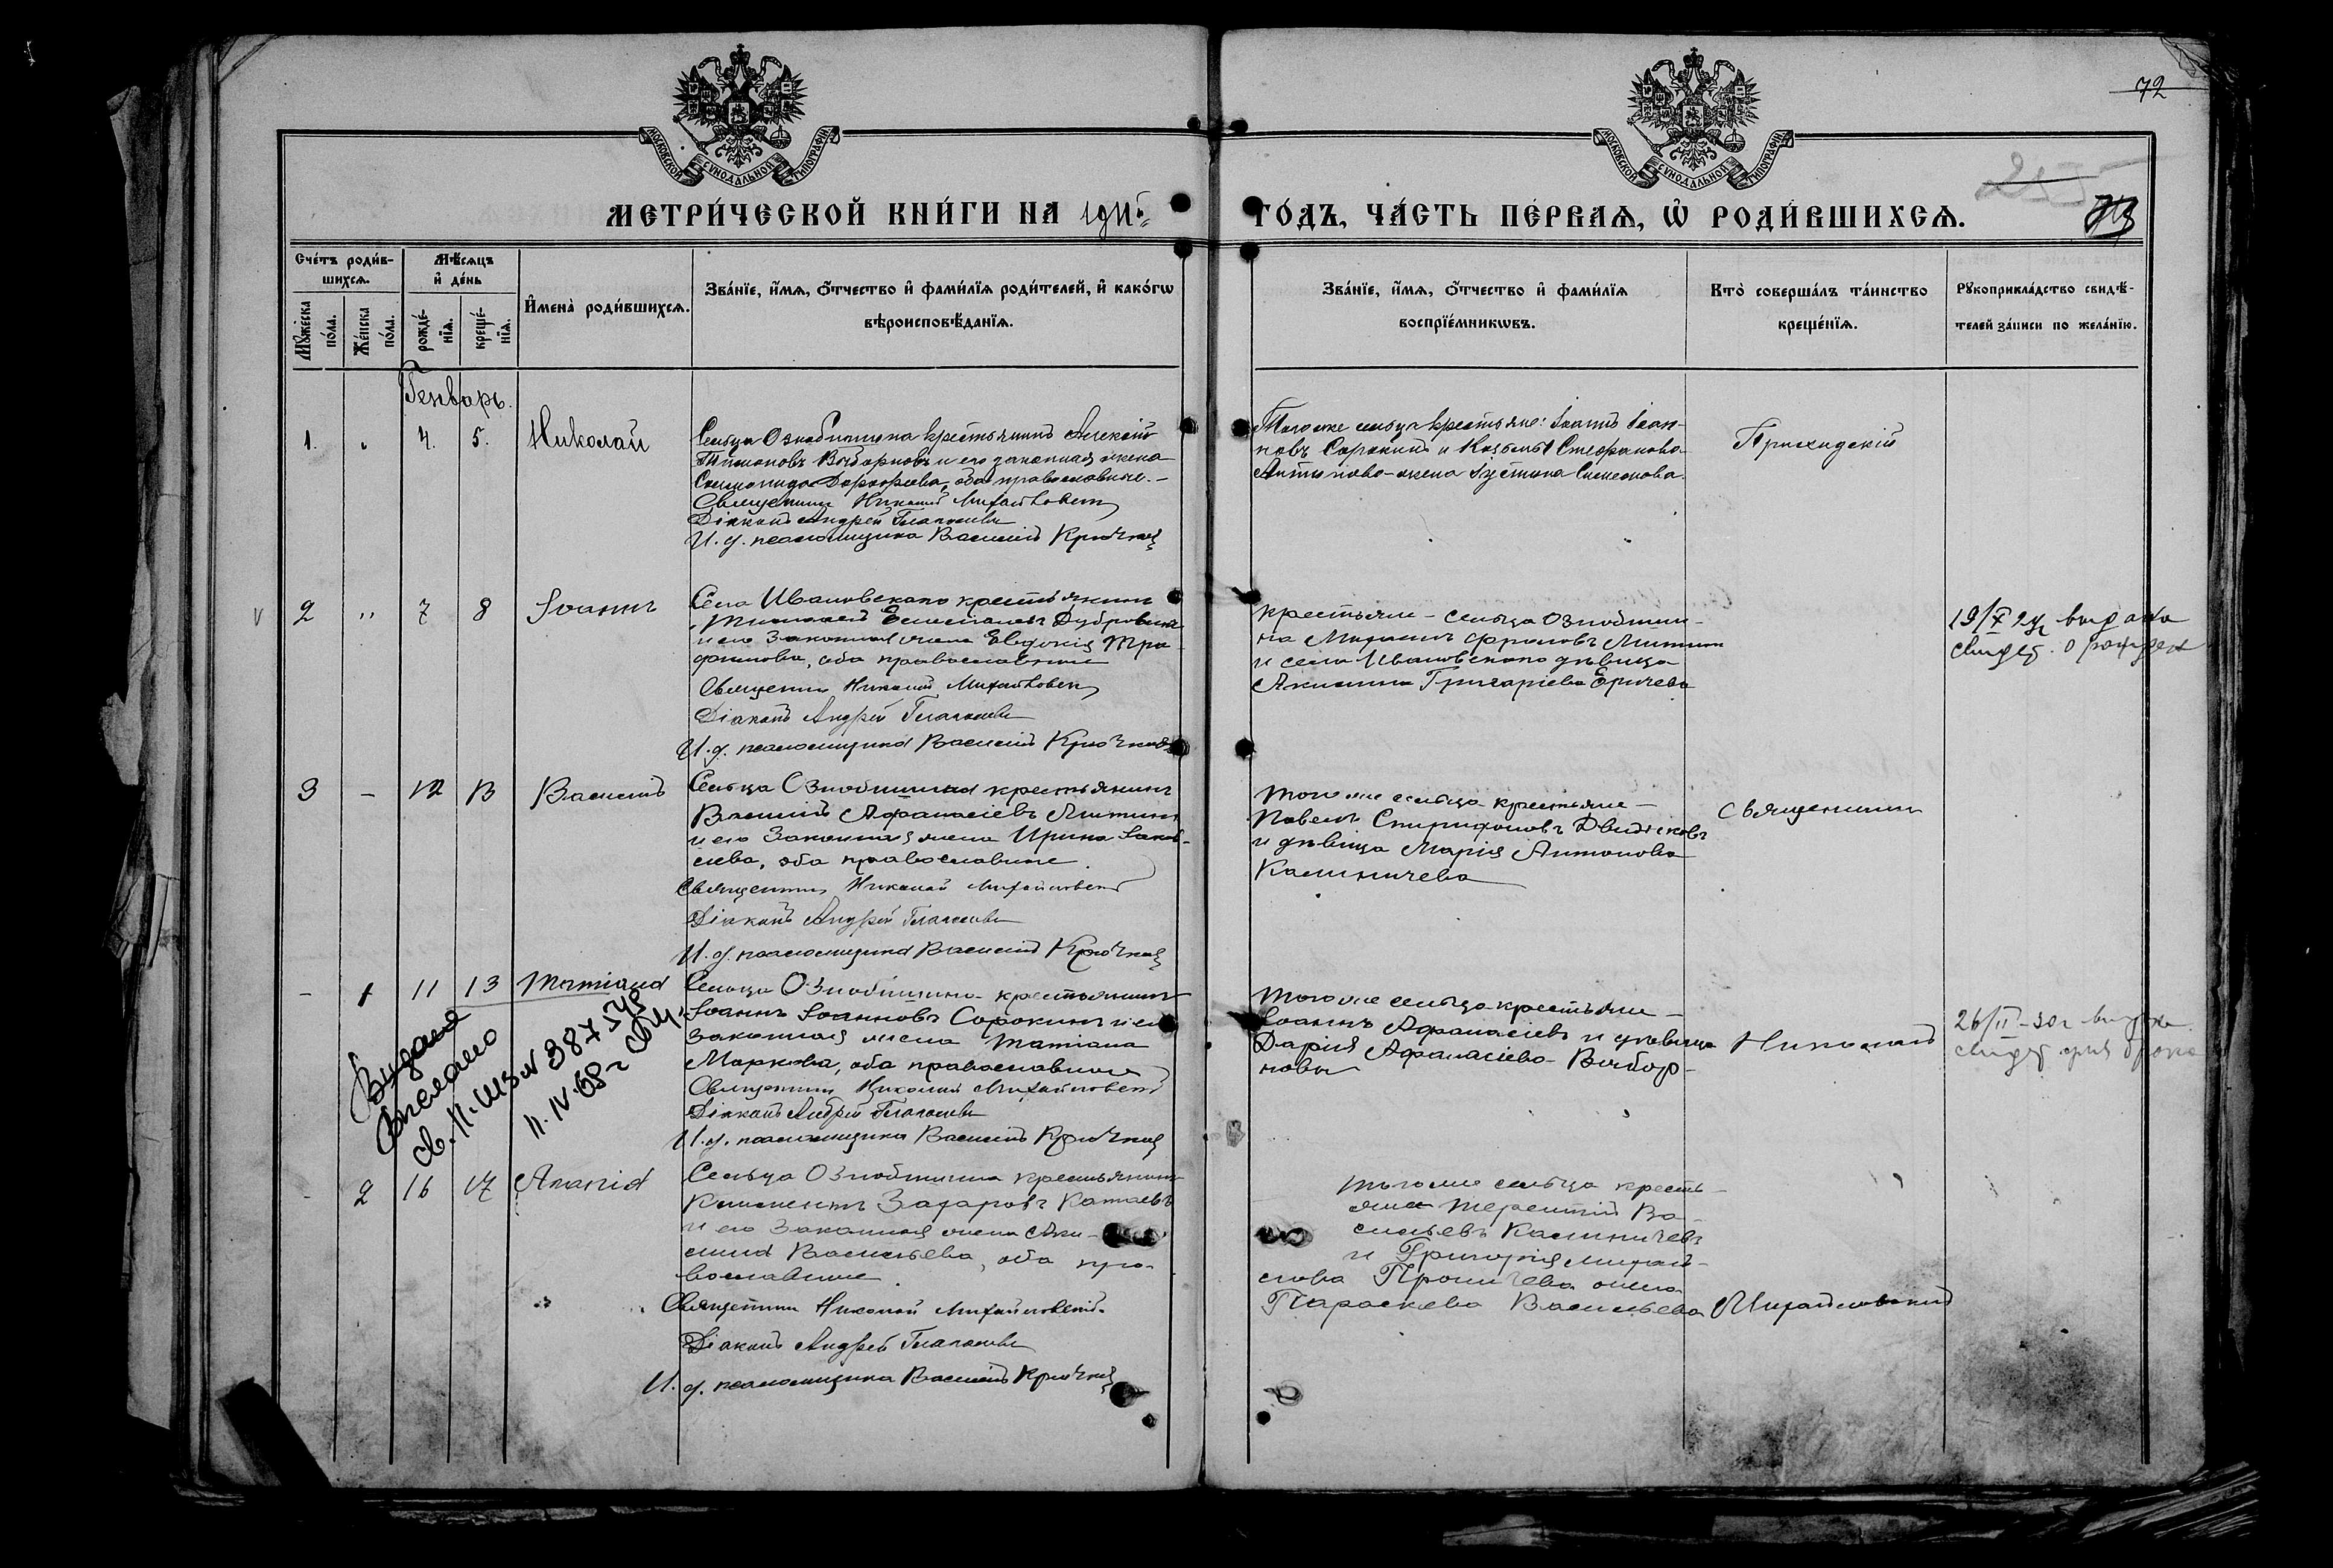 МОСКОВСКОЙ СУНОДАЛЬНОЙ ТИПОГРАФІИ
МОСКОВСКОЙ СУНОДАЛЬНОЙ ТИПОГРАФІИ
72
МЕТРИ́ЧЕСКОЙ КНИ́ГИ НА 1911й
ГО́ДЪ, ЧА́СТЬ ПЕ́РВАѦ, Ѡ҆ РОДИ́ВШИХСѦ.
Сче́тъ роди́в-
шихсѧ.
Мѣ́сѧцъ
и҆ де́нь
Мꙋ́жеска
по́ла.
Же́нска
по́ла.
рожде́-
нїѧ.
креще́-
нїѧ.
И҆мена̀ роди́вшихсѧ.
Зва́нїе, и҆́мѧ, ѻ҆́тчество и҆ фами́лїѧ роди́телей, и҆ како́гѡ
вѣроисповѣ́данїѧ.
Зва́нїе, и҆́мѧ, ѻ҆́тчество и҆ фами́лїѧ
воспрїе́мникѡвъ.
Кто̀ соверша́лъ та́инство
креще́нїѧ.
Рꙋкоприкла́дство свидѣ́-
телей за́писи по жела́нїю.
Генварь.
1. " 4. 5. Николай
Сельца Ознобишина крестьянинъ Алексій
Тимоновъ Выборновъ и его законная жена
Соломонида Дорофеева, оба православные.
Священникъ Николай Михайловскій
Діаконъ Андрей
И. д. псаломщика Василій Крючков
Того же сельца крестьяне: Іоаннъ Іоан-
новъ Сорокинъ и Козьмы Стефанова
Антипова жена Іустина Симеонова.
Приходскій
2 " 7 8 Іоаннъ
Села Ивановскаго крестьянинъ
Дубровинъ
и его законная жена Евдокія Тро-
фимова, оба православные
Священникъ Николай Михайловскій
Діаконъ Андрей
И. д. псаломщика Василій Крючков
крестьяне - сельца Ознобиши-
на Фроловъ
и села Ивановскаго дѣвица
Акилина Григоріева
19/X 24 выдано
свидет. о рожден
3 - 12 13 Василій
Сельца Ознобишина крестьянинъ
Василій Афанасіевъ
и его законная жена Ирина Іаков-
лева, оба православные.
Священникъ Николай Михайловскій
Діаконъ Андрей
И. д. псаломщика Василій Крючков
Того же сельца крестьяне -
Павелъ Спиридоновъ
и дѣвица Марія Антонова
Калиничева
Священникъ
- 1 11 13 Татіана
Сельца Ознобишина крестьянинъ
Іоаннъ Іоанновъ Сорокинъ и его
законная жена Татіана
Маркова, оба православные
Священникъ Николай Михайловскій
Діаконъ Андрей
И. д. псаломщика Василій Крючков
Того же сельца крестьяне -
Іоаннъ Афанасіевъ и дѣвица
Дарія Афанасіева Выбор-
новы
Николай
26/II-30г выдано
свидет. для брака
Выдано
11.IV.68г
- 2 16 17
Сельца Ознобишина крестьянинъ
Климентъ Захаровъ
и его законная жена Аки-
лина Васильева, оба пра-
вославные.
Священникъ Николай Михайловскій.
Діаконъ Андрей
И. д. псаломщика Василій Крючков
Того же сельца кресть-
яне Терентій Ва-
сильевъ Калиничевъ
и Григорія Михай-
лова жена
Параскева Васильева
Михайловскій